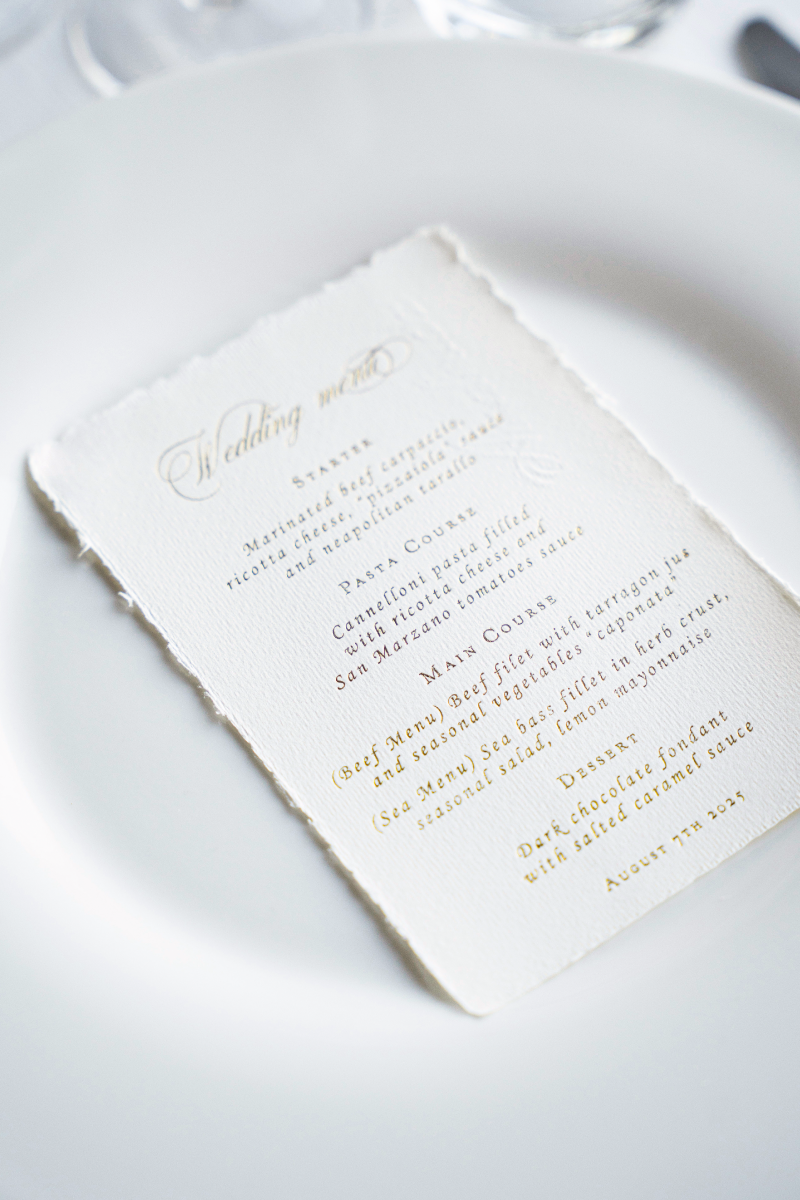 Wedding menu
Starter
Marinated beef carpaccio,
ricotta cheese, "pizzaiola" sauce
and neapolitan tarallo
Pasta Course
Cannelloni pasta filled
with ricotta cheese and
San Marzano tomatoes sauce
Main Course
(Beef Menu) Beef filet with tarragon jus
and seasonal vegetables "caponata"
(Sea Menu) Sea bass fillet in herb crust,
seasonal salad, lemon mayonnaise
Dessert
Dark chocolate fondant
with salted caramel sauce
August 7th 2025